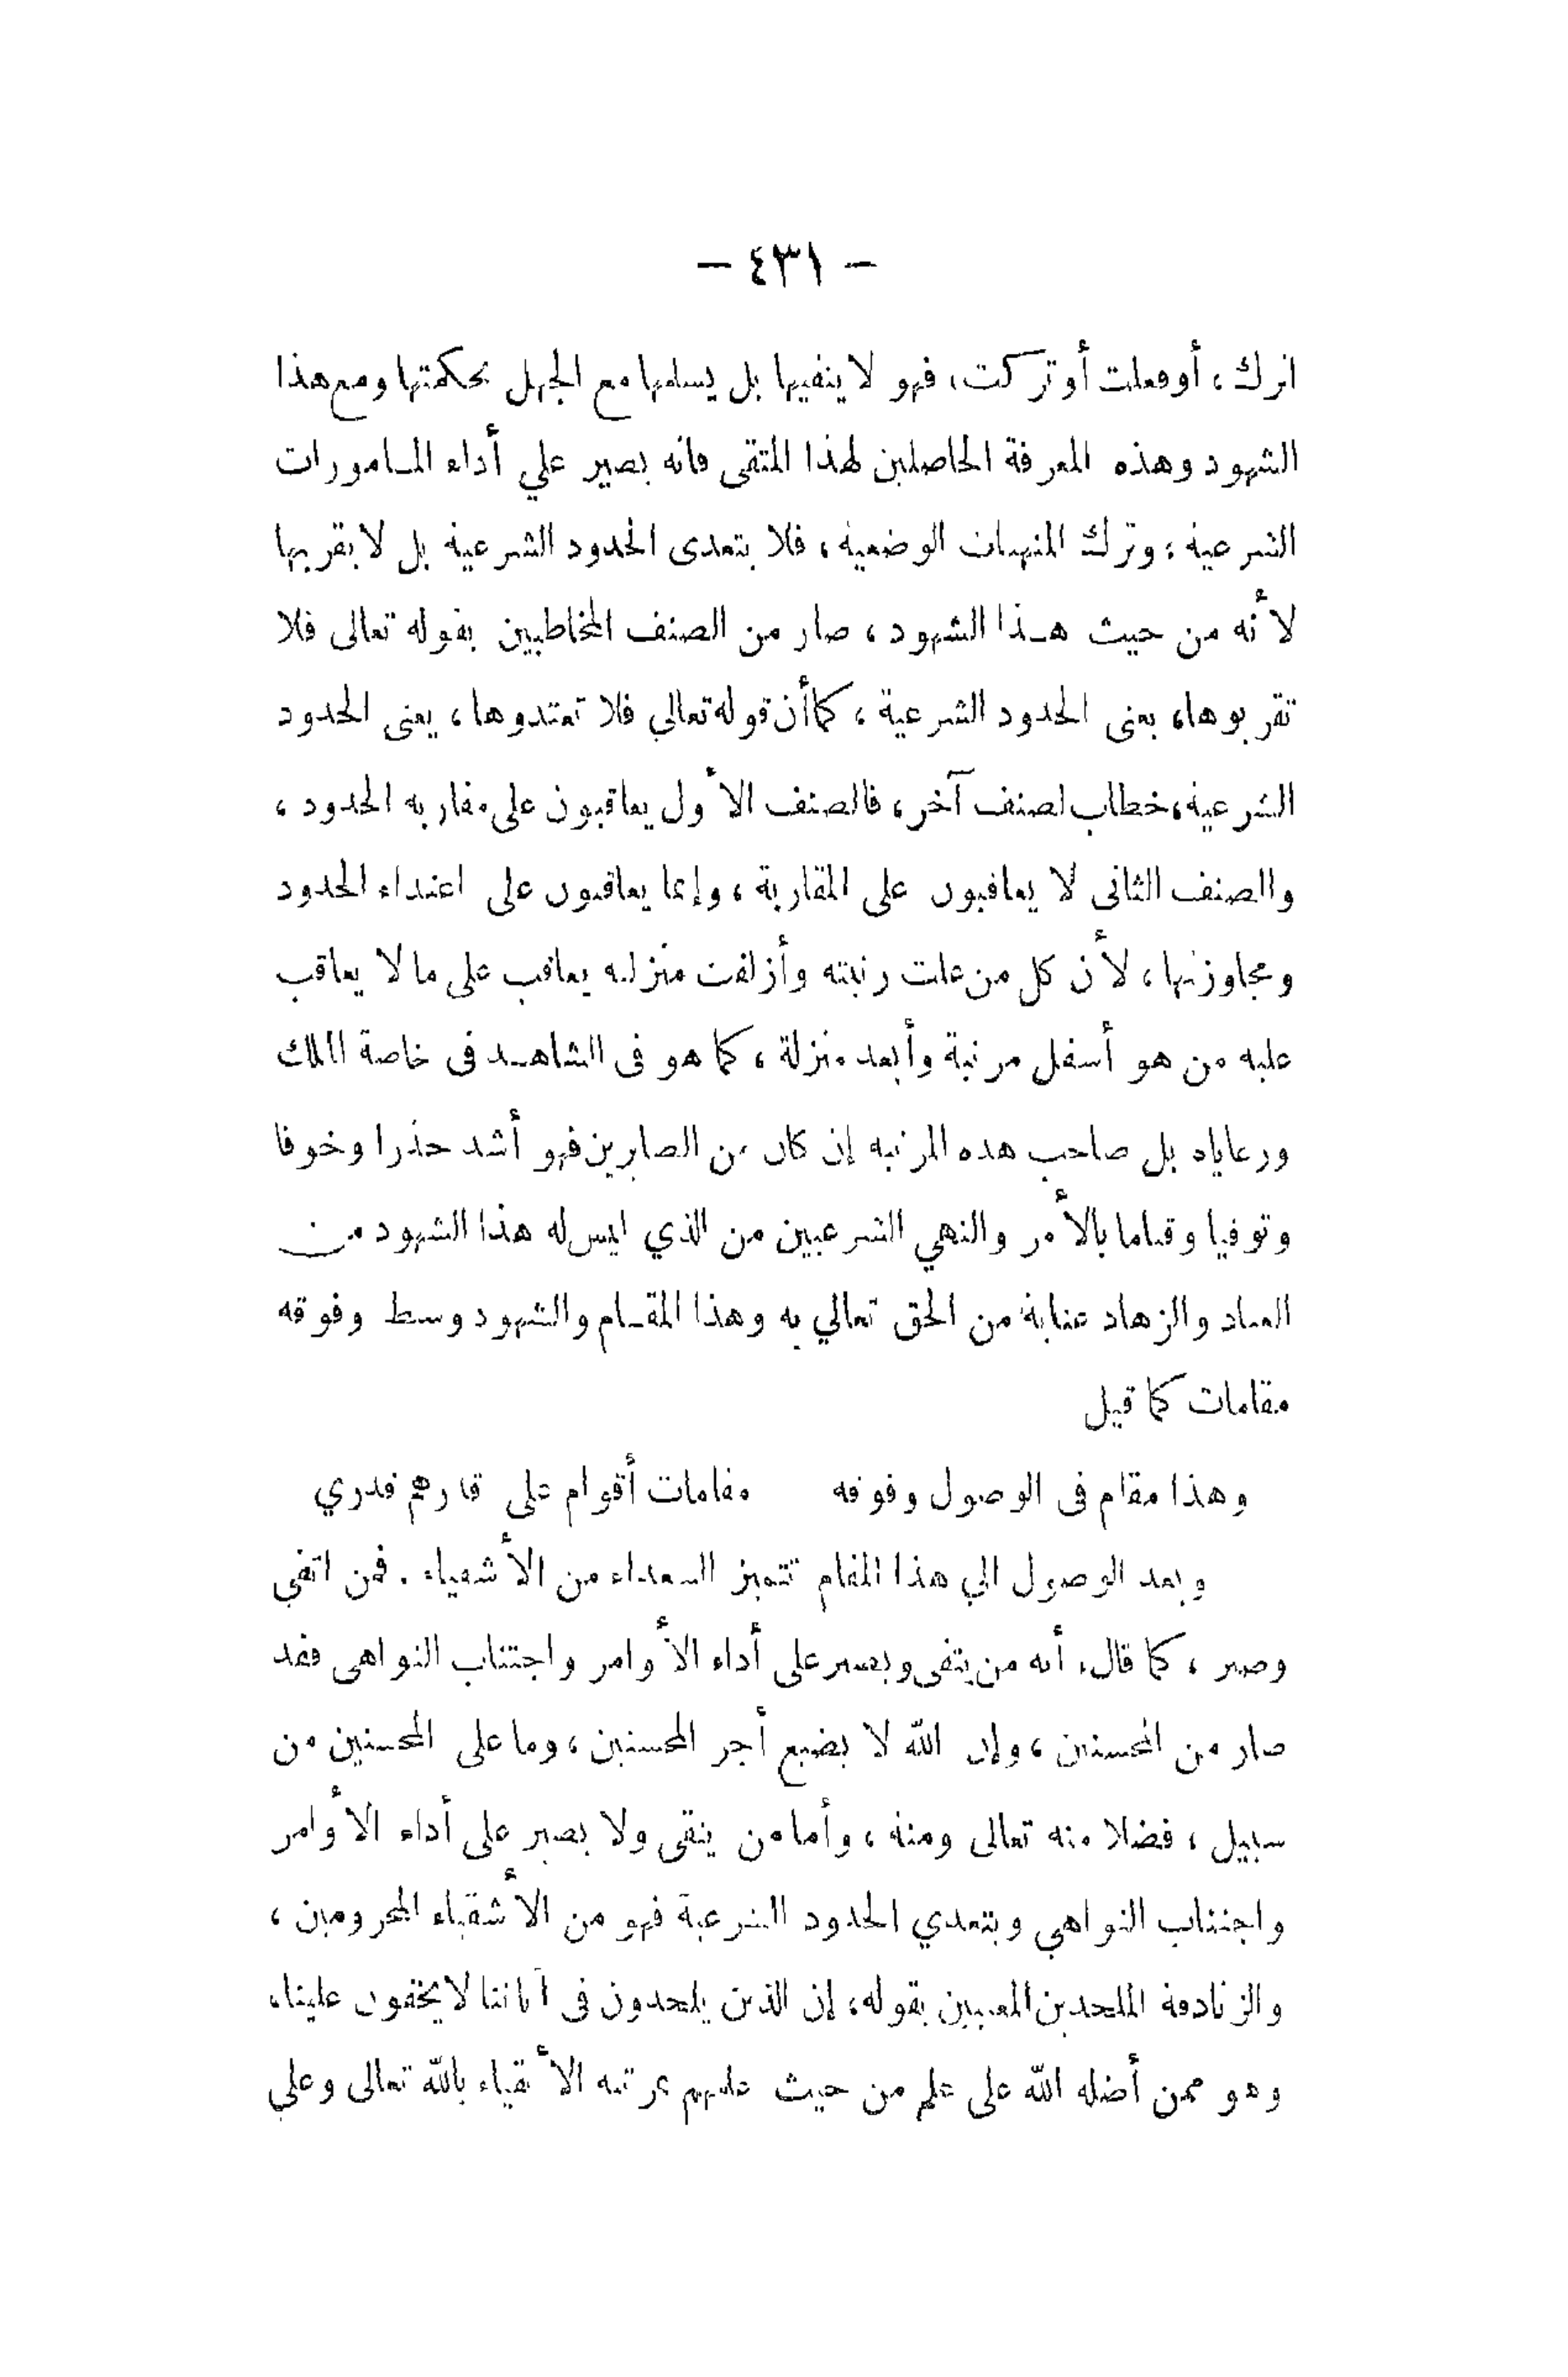 — ٤٣١ —
اترك ، أو فعلت أو تركت ، فهو لا ينفيها بل يسلمها مع الجهل بحكمتها ومع هذا
الشهود وهذه المعرفة الحاصلين لهذا المتقى فانه يصبر علي أداء المـامورات
الشرعية ؛ وترك المنهيات الوضعية ، فلا يتعدى الحدود الشرعية بل لا يقربها
لأنه من حيث هـذا الشهود ، صار من الصنف المخاطبين بقوله تعالى فلا
تقربوها ، يعنى الحدود الشرعية ، كما أن قوله تعالي فلا تعتدوها ، يعنى الحدود
الشرعية ، خطاب لصنف آخر ، فالصنف الأول يعاقبون على مقاربة الحدود ،
والصنف الثانى لا يعاقبون على المقاربة ، وإنما يعاقبون على اعتداء الحدود
ومجاوزتها ، لأن كل من علت رتبته وأزلفت منزلته يعاقب على ما لا يعاقب
عليه من هو أسفل مرتبة وأبعد منزلة ، كما هو فى الشاهـد فى خاصة الملك
ورعاياه بل صاحب هذه المرتبة إن كان من الصابرين فهو أشد حذرا وخوفا
وتوفيا وقياما بالأمر والنهي الشرعيين من الذي ليس له هذا الشهود من
العباد والزهاد عناية من الحق تعالي به وهذا المقـام والشهود وسط وفوقه
مقامات كما قيل
وهذا مقام فى الوصول وفوقه مقامات أقوام على قدرهم قدري
وبعد الوصول الي هذا المقام تتميز السعداء من الأشقياء . فمن اتقى
وصبر ، كما قال ، أنه من يتقى ويصبر على أداء الأوامر واجتناب النواهى فقد
صار من المحسنين ، وإن الله لا يضيع أجر المحسنين ، وما على المحسنين من
سبيل ، فضلا منه تعالى ومنة ، وأما من يتقى ولا يصبر على أداء الأوامر
واجتناب النواهي ويتعدي الحدود الشرعية فهو من الأشقياء المحرومين ،
والزنادقة الملحدين المعنيين بقوله ، إن الذين يلحدون فى آياتنا لا يخفون علينا ،
وهو ممن أضله الله على علم من حيث علمهم بمرتبة الأتقياء بالله تعالى وعلي